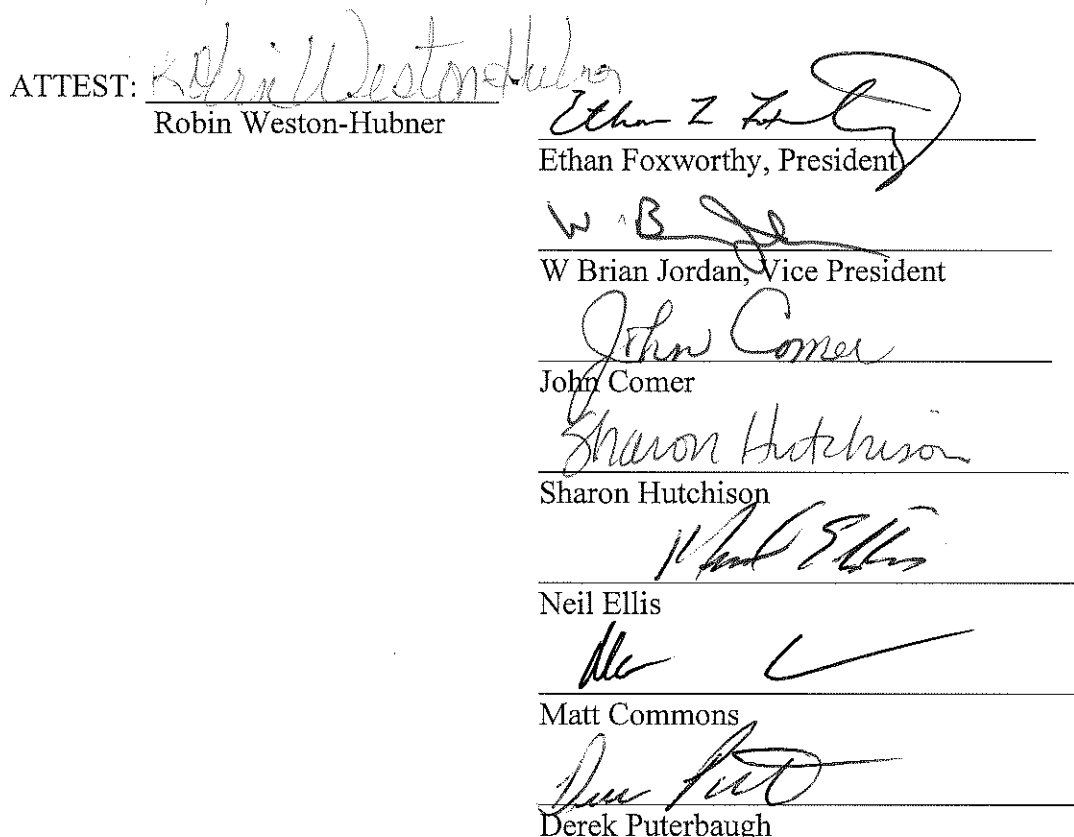 ATTEST: Robin Weston-Hubner
Robin Weston-Hubner
Ethan Z
Ethan Foxworthy, President
W B
W Brian Jordan, Vice President
John Comer
John Comer
Sharon Hutchison
Sharon Hutchison
Ellis
Neil Ellis
Matt Commons
Derek Puterbaugh